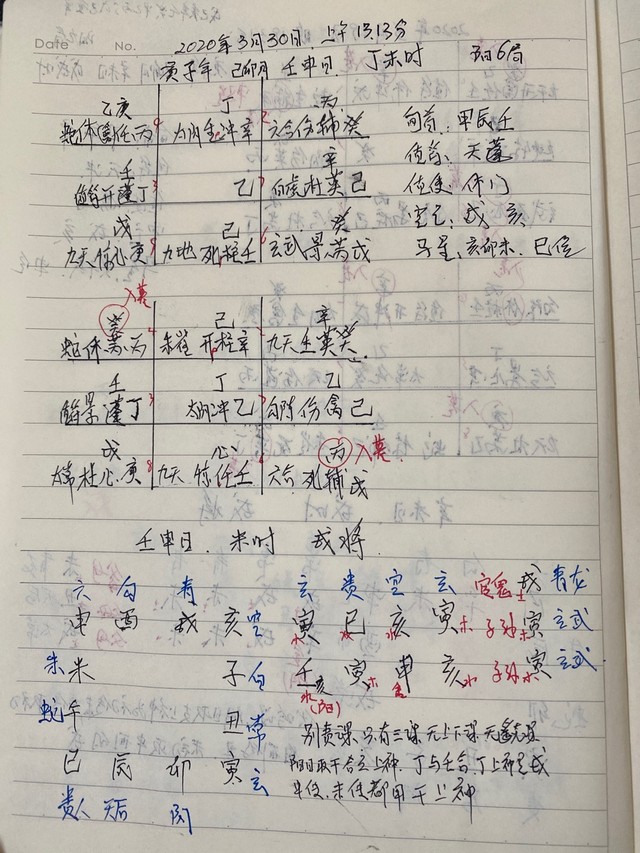 Date No. 2020年3月30日.上午13.13分
庚子年 己卯月 壬申日. 丁未时 阳6局
乙亥 丁 丙
蛇休任丙 冲辛 六合伤辅癸 旬首:甲辰壬
壬 辛 值首:天蓬
开蓬丁 乙 白虎杜英己 值使:休门
戊 己 癸 空亡:戌亥
九天惊心庚 九地死柱壬 玄武景芮戊 马星:亥卯未.巳位
癸 入墓 己 辛
蛇休芮丙 朱雀开柱辛 九天生英癸
壬 丁 乙
景蓬丁 冲乙 勾陈伤禽己
戊 心 丙 入墓
杜心庚 九天惊任壬 六合死辅戊
壬申日. 未时 戌将.
六 勾 青 玄 贵 空 玄 官鬼土戌 青龙
申 酉 戌 亥空 寅 巳 亥 寅木 子孙寅 玄武
朱未 子白 壬 寅 申 亥水 子孙木寅 玄武
蛇午 丑常 别责课.只有三课无上下课无遥克
巳 辰 卯 寅玄 阳日取干合之上神.丁与壬合丁上神是戌
贵人 天后 阴 中传,末传都用干上神